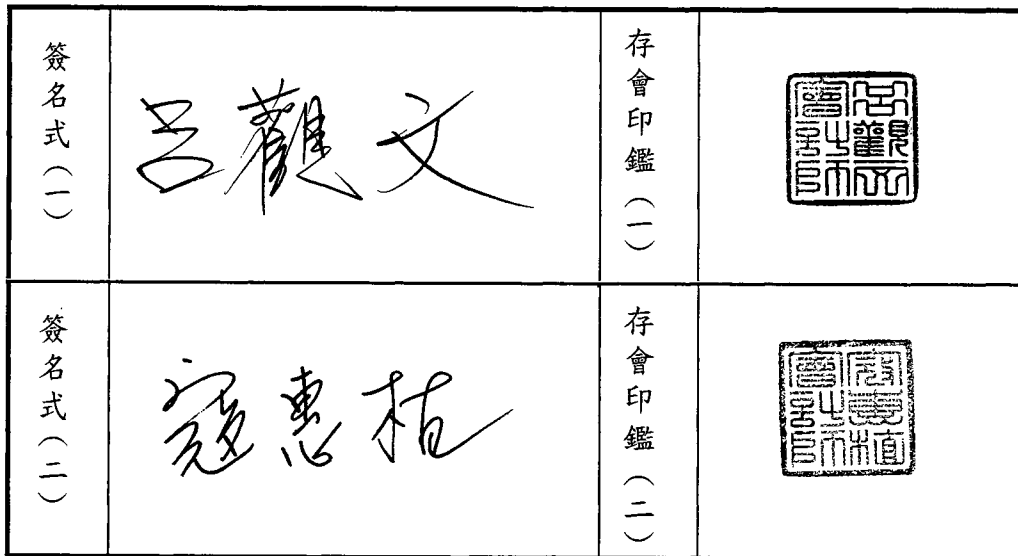 簽名式（一）
呂觀文
存會印鑑（一）
呂觀文
會計師
簽名式（二）
寇惠植
存會印鑑（二）
寇惠植
會計師